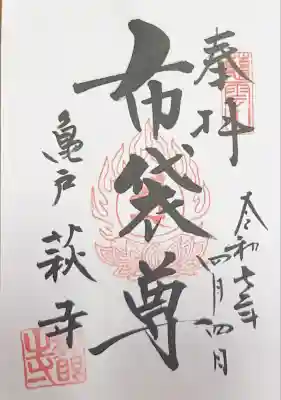 奉拝
令和七年
四月四日
布袋尊
亀戸
萩寺